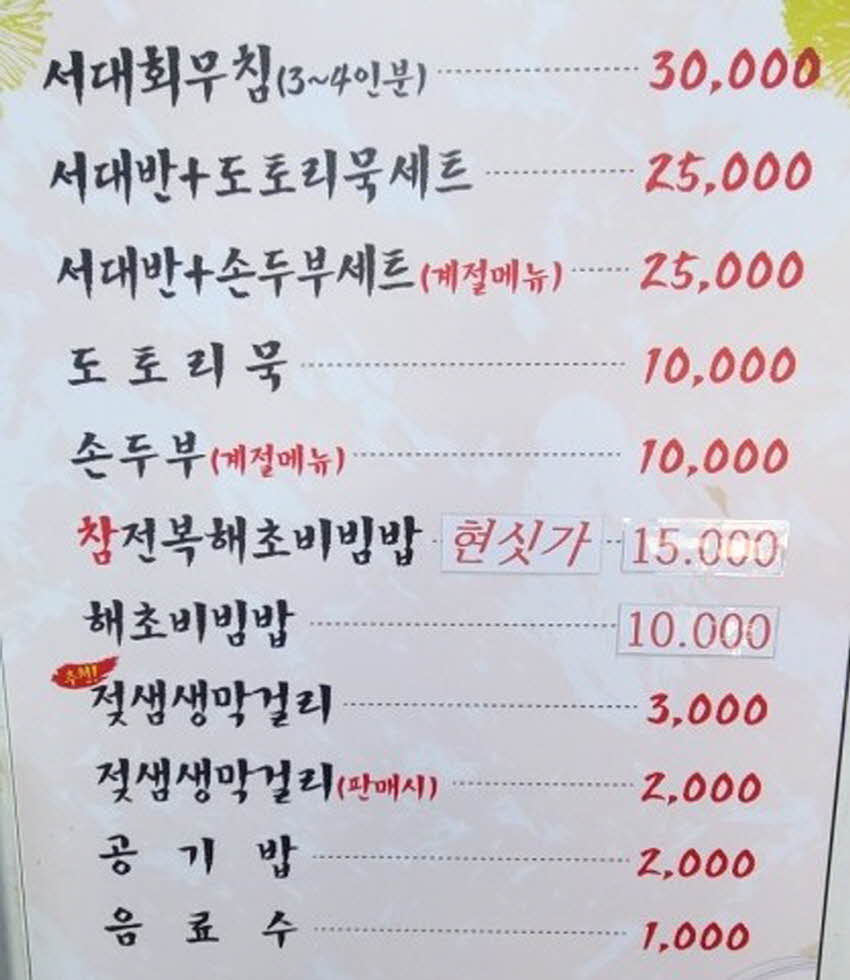 서대회무침(3~4인분) 30,000
서대반+도토리묵세트 25,000
서대반+손두부세트(계절메뉴) 25,000
도토리묵 10,000
손두부(계절메뉴) 10,000
참전복해초비빔밥 현싯가 15.000
해초비빔밥 10.000
추천!
젖샘생막걸리 3,000
젖샘생막걸리(판매시) 2,000
공기밥 2,000
음료수 1,000